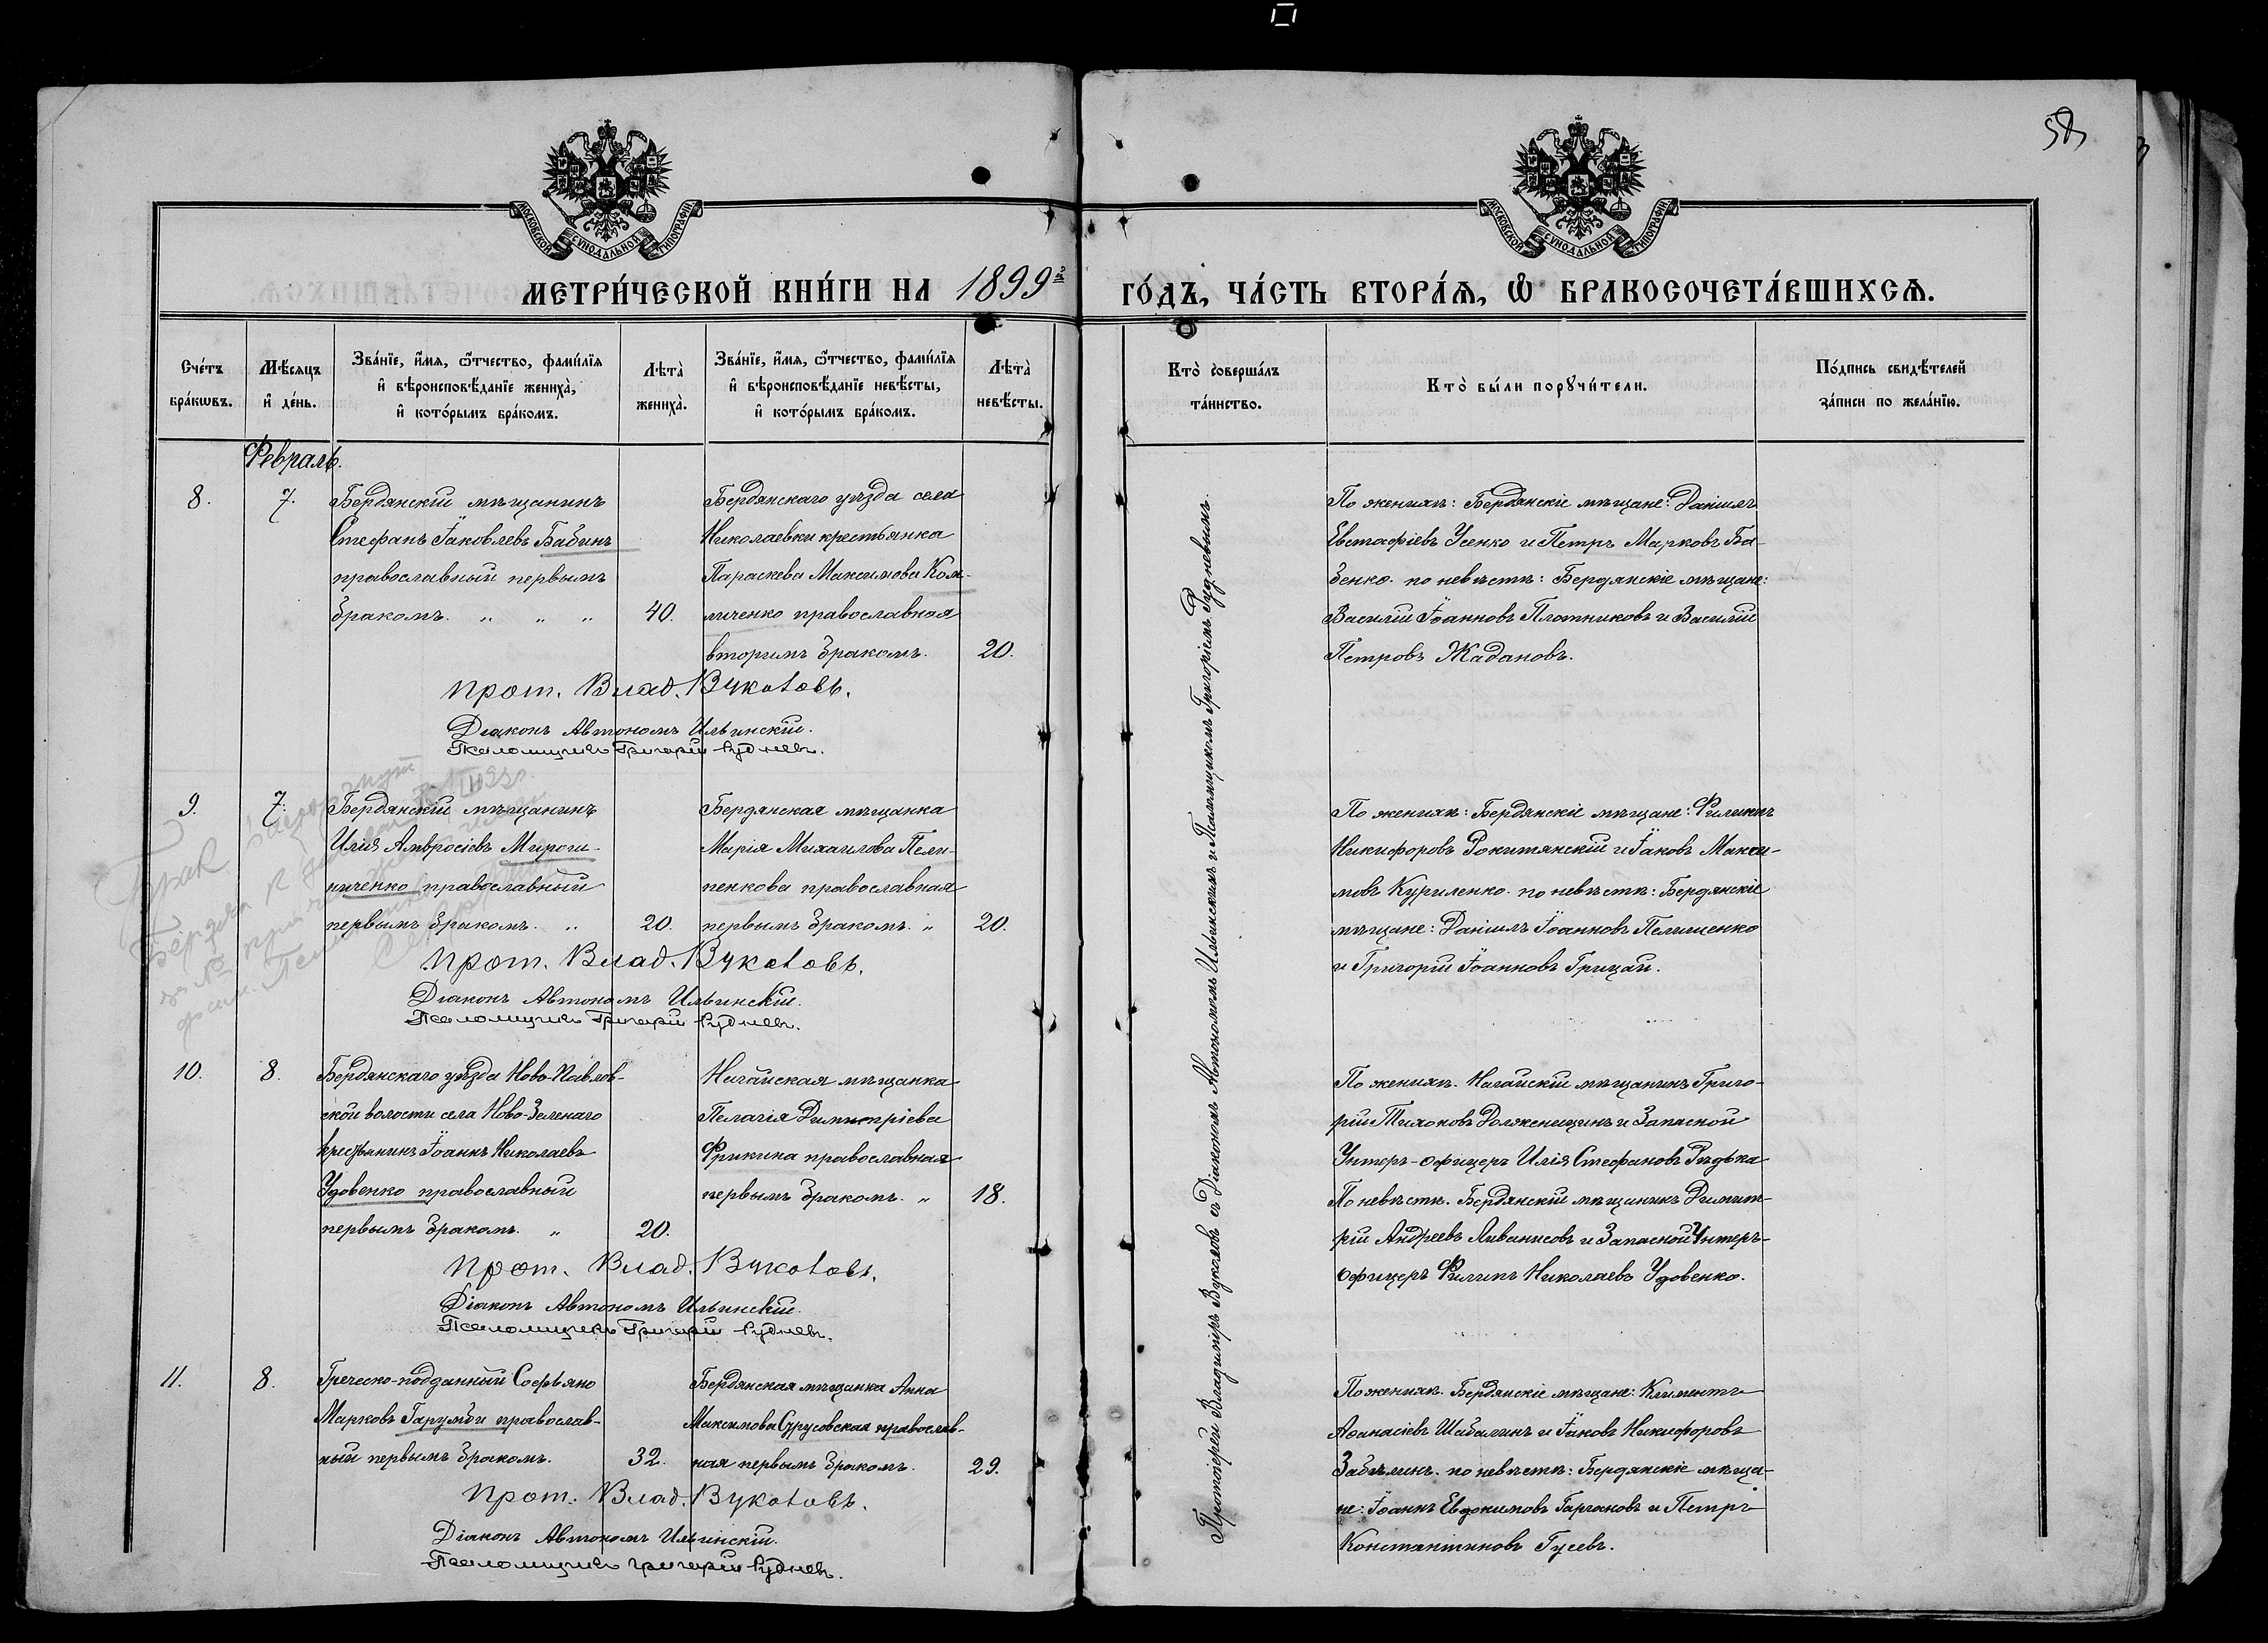 58
МОСКОВСКОЙ СѴНОДАЛЬНОЙ ТИПОГРАФІИ
МОСКОВСКОЙ СѴНОДАЛЬНОЙ ТИПОГРАФІИ
МЕТРИ́ЧЕСКОЙ КНИ́ГИ НА 1899й ГО́ДЪ, ЧА́СТЬ ВТОРА́Ѧ, Ѽ БРАКОСОЧЕТА́ВШИХСѦ.
Сче́тъ
бра́кѡвъ.
Мѣ́сяцъ
и҆ де́нь.
Зва́нїе, и҆́мѧ, ѻ҆́тчество, фами́лїѧ
и҆ вѣроисповѣ́данїе жениха̀,
и҆ кото́рымъ бра́комъ.
Лѣта̀
жениха̀.
Зва́нїе, и҆́мѧ, ѻ҆́тчество, фами́лїѧ
и҆ вѣроисповѣ́данїе невѣ́сты,
и҆ кото́рымъ бра́комъ.
Лѣта̀
невѣ́сты.
Кто̀ соверша́лъ
та́инство.
Кто̀ бы́ли порꙋчи́тели.
По́дпись свидѣ́телей
за́писи по жела́нїю.
Февраль.
8.
7.
Бердянскій мѣщанинъ
Стефанъ Іаковлевъ Бабинъ
православный первымъ
бракомъ. „ „ „
40.
Бердянскаго уѣзда села
Николаевки крестьянка
Параскева Максимова Ком-
личенко православная
вторымъ бракомъ.
20.
По женихѣ: Бердянскіе мѣщане: Даніилъ
Евстафіевъ Усенко и Петръ Марковъ Ба-
бенко. по невѣстѣ: Бердянскіе мѣщане:
Василій Іоанновъ Плотниковъ и Василій
Петровъ Жадановъ.
Прот. Влад. Вуколовъ.
Діаконъ Автономъ Ильинскій.
Псаломщикъ Григорій Рудневъ.
9.
7.
Бердянскій мѣщанинъ
Илія Амвросіевъ Мироши-
ниченко православный
первымъ бракомъ. „
20.
Бердянская мѣщанка
Марія Михаилова Пели-
пенкова православная
первымъ бракомъ. „
20.
По женихѣ: Бердянскіе мѣщане: Филиппъ
Никифоровъ Рокитянскій и Іаковъ Макси-
мовъ Куриленко. по невѣстѣ: Бердянскіе
мѣщане: Даніилъ Іоанновъ Пелипенко
и Григорій Іоанновъ Грицай.
Брак расторгнут
Прот. Влад. Вуколовъ.
Діаконъ Автономъ Ильинскій.
Псаломщикъ Григорій Рудневъ.
10.
8.
Бердянскаго уѣзда Ново-Павлов-
ской волости села Ново-Зеленаго
крестьянинъ Іоаннъ Николаевъ
Удовенко православный
первымъ бракомъ. „
20.
Ногайская мѣщанка
Пелагія Димитріева
Фрикина православная
первымъ бракомъ. „
18.
По женихѣ. Ногайскій мѣщанинъ Григо-
рій Тихоновъ Долженицинъ и Запасной
Унтеръ-офицеръ Илія Стефановъ Рѣдька
По невѣстѣ. Бердянскій мѣщанинъ Димит-
рій Андреевъ Ливанисовъ и Запасной Унтеръ-
офицеръ Филипъ Николаевъ Удовенко.
Прот. Влад. Вуколовъ.
Діаконъ Автономъ Ильинскій.
Псаломщикъ Григорій Рудневъ.
11.
8.
Греческо-подданный Софьяно
Марковъ Гарумби православ-
ный первымъ бракомъ.
32.
Бердянская мѣщанка Анна
Максимова Струсовская православ-
ная первымъ бракомъ.
29.
По женихѣ. Бердянскіе мѣщане: Климентъ
Аѳанасіевъ Шабалинъ и Іаковъ Никифоровъ
Забѣлинъ. по невѣстѣ: Бердянскіе мѣща-
не: Іоаннъ Евдокимовъ Гаргановъ и Петръ
Константиновъ Гусевъ.
Прот. Влад. Вуколовъ.
Діаконъ Автономъ Ильинскій.
Псаломщикъ Григорій Рудневъ.
Протоіерей Владиміръ Вуколовъ съ Діакономъ Автономомъ Ильинскимъ и Псаломщикомъ Григоріемъ Рудневымъ.